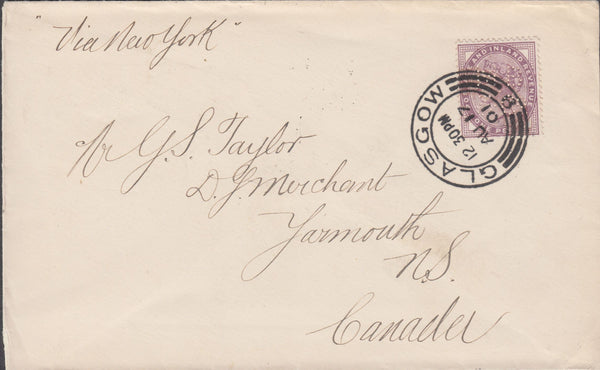 "Via New York"
POSTAGE AND INLAND REVENUE
GLASGOW
12 30PM
AU 17
01
Mr G.S. Taylor
D.G. Merchant
Yarmouth
N.S.
Canada